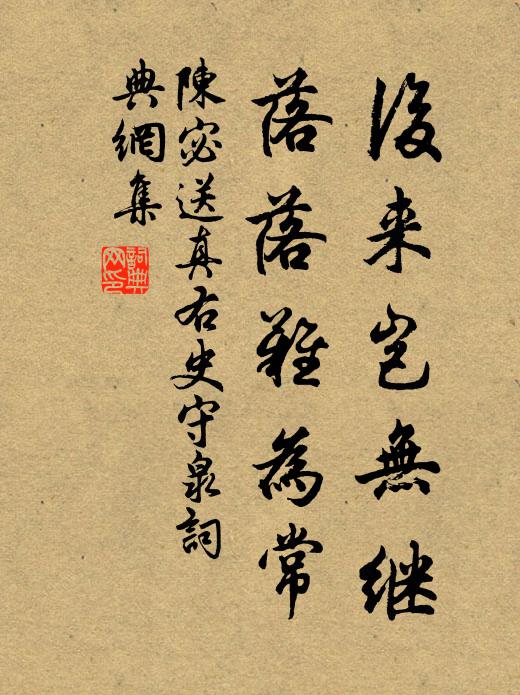 後来豈無继
落落難為常
陳宓送真右史守泉詞
典網集
詞典网印